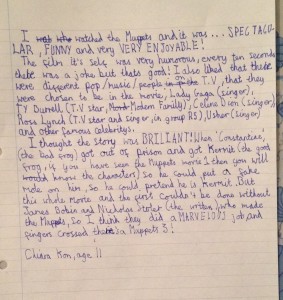 I watched the Muppets and it was... SPECTACU-
LAR, FUNNY and very VERY ENJOYABLE!
The film it's self was very humorous, every ten seconds
there was a joke but thats good! I also liked that there
were different pop/music/people on the T.V, that they
were chosen to be in the movie; Lady Gaga (singer),
Ty Burrell, (T.V star, Modern Family), Celine Dion (singer)
Ross Lynch (T.V star and singer, in group R5), Usher (singer)
and other famous celebritys.
I thought the story was BRILLIANT! When 'Constantine,
(the bad frog) got out of prison and got Kermit (the good
frog, if you have seen the Muppets movie 1 then you will
know the characters) So he could put a fake
mole on him, so he could pretend he is Kermit. But
this whole Movie and the first Couldn't be done without
James Bobin and Nicholas Stoler (the writer) who made
the Muppets, So I think they did a MARVELOUS job and
fingers crossed theres a Muppets 3!
Chiara Kon, age 11